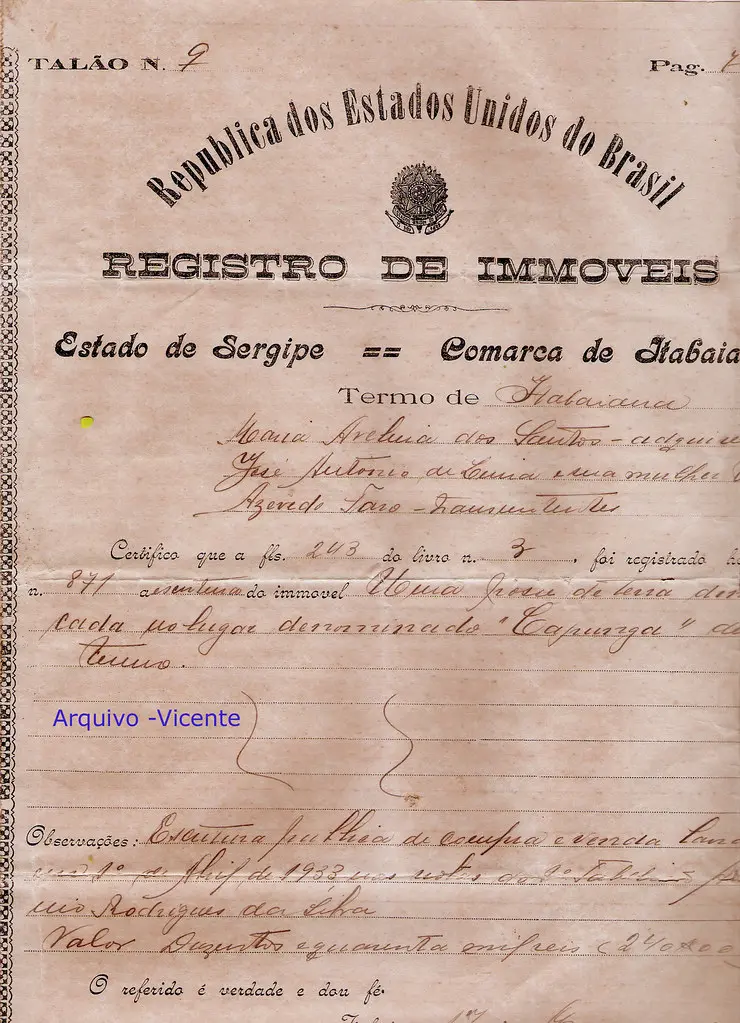 TALÃO N. 9
Pag. 7
Republica dos Estados Unidos do Brasil
REGISTRO DE IMMOVEIS
Estado de Sergipe == Comarca de Itabaia
Termo de Itabaiana
Maria Avelina dos Santos - adquire
José Antonio de Lima e sua mulher
Azevedo - transmittentes
Certifico que a fls. 243 do livro n. 3, foi registrado h
n. 871 a escriptura do immovel Uma posse de terra
cada no lugar denominado "Capunga" d
termo.
Arquivo -Vicente
Observações: Escritura publica de compra e venda
1º de Abril de 1933 nas notas do 1º
Rodrigues da Silva
Valor Duzentos e quarenta mil reis (240
O referido é verdade e dou fé.